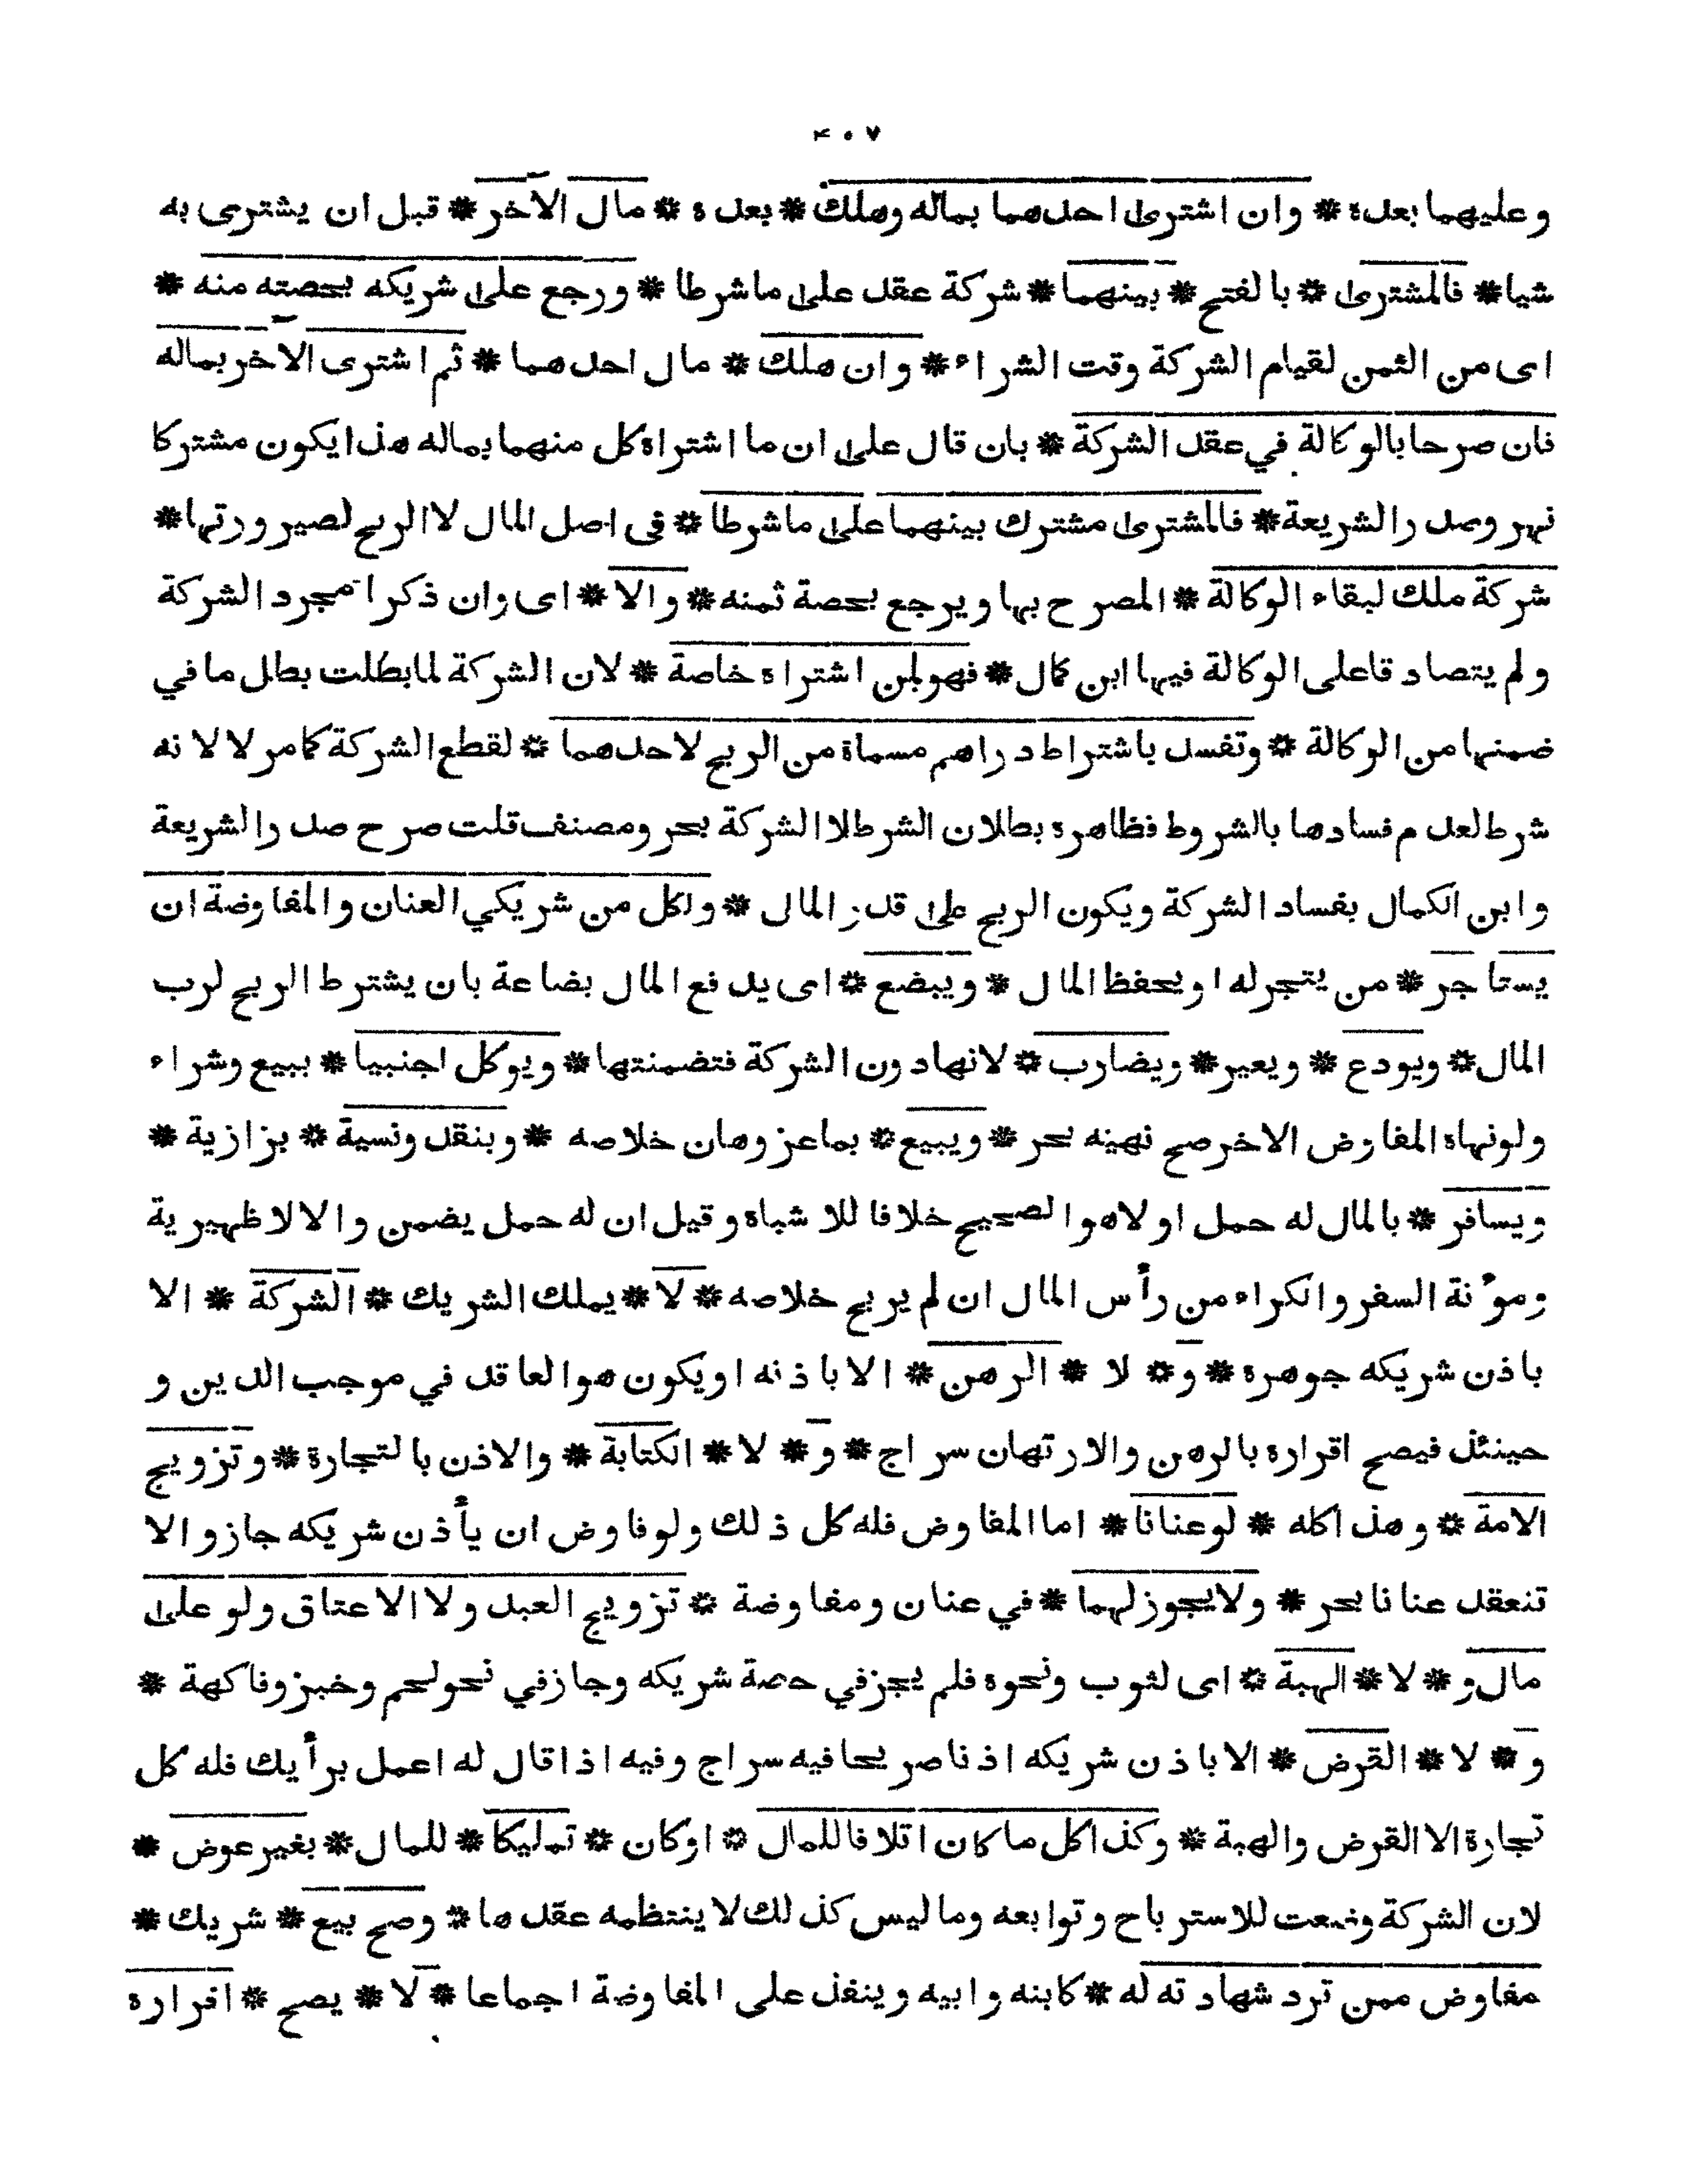 ۴۰۷
وعليهما بعده * وان اشترى احدهما بماله وهلك * بعده * مال الآخر * قبل ان يشترى به
شيا * فالمشترى * بالفتح * بينهما * شركة عقد على ماشرطا * ورجع على شريكه بحصته منه *
اى من الثمن لقيام الشركة وقت الشراء * وان هلك * مال احدهما * ثم اشترى الآخر بماله
فان صرحا بالوكالة في عقد الشركة * بان قال على ان ما اشتراه كل منهما بماله هذا يكون مشتركا
نهر وصدر الشريعة * فالمشترى مشترك بينهما على ماشرطا * فى اصل المال لا الربح لصيرورتها *
شركة ملك لبقاء الوكالة * المصرح بها ويرجع بحصة ثمنه * والا * اى وان ذكرا مجرد الشركة
ولم يتصادقا على الوكالة فيها ابن كمال * فهو لمن اشتراه خاصة * لان الشركة لما بطلت بطل ما في
ضمنها من الوكالة * وتفسد باشتراط دراهم مسماة من الربح لاحدهما * لقطع الشركة كما مر لا لانه
شرط لعدم فسادها بالشروط فظاهره بطلان الشرط لا الشركة بحر ومصنف قلت صرح صدر الشريعة
وابن الكمال بفساد الشركة ويكون الربح على قدر المال * ولكل من شريكي العنان والمفاوضة ان
يستاجر * من يتجر له او يحفظ المال * ويبضع * اى يدفع المال بضاعة بان يشترط الربح لرب
المال * ويودع * ويعير * ويضارب * لانها دون الشركة فتضمنتها * ويوكل اجنبيا * ببيع وشراء
ولو نهاه المفاوض الاخر صح نهيه بحر * ويبيع * بما عز وهان خلاصه * وبنقد ونسية * بزازية *
ويسافر * بالمال له حمل او لا هو الصحيح خلافا للاشباه وقيل ان له حمل يضمن والا لا ظهيرية
ومؤنة السفر والكراء من رأس المال ان لم يربح خلاصه * لا * يملك الشريك * الشركة * الا
باذن شريكه جوهرة * و * لا * الرهن * الا باذنه او يكون هو العاقد في موجب الدين و
حينئذ فيصح اقراره بالرهن والارتهان سراج * و * لا * الكتابة * والاذن بالتجارة * وتزويج
الامة * وهذا كله * لو عنانا * اما المفاوض فله كل ذلك ولو فاوض ان يأذن شريكه جاز والا
تنعقد عنانا بحر * ولا يجوز لهما * في عنان ومفاوضة * تزويج العبد ولا الاعتاق ولو على
مال و * لا * الهبة * اى لثوب ونحوه فلم يجز في حصة شريكه وجاز في نحو لحم وخبز وفاكهة *
و * لا * القرض * الا باذن شريكه اذنا صريحا فيه سراج وفيه اذا قال له اعمل برأيك فله كل
تجارة الا القرض والهبة * وكذا كل ما كان اتلافا للمال * او كان * تمليكا * للمال * بغير عوض *
لان الشركة وضعت للاسترباح وتوابعه وما ليس كذلك لا ينتظمه عقدها * وصح بيع * شريك *
مفاوض ممن ترد شهادته له * كابنه وابيه وينفذ على المفاوضة اجماعا * لا * يصح * اقراره